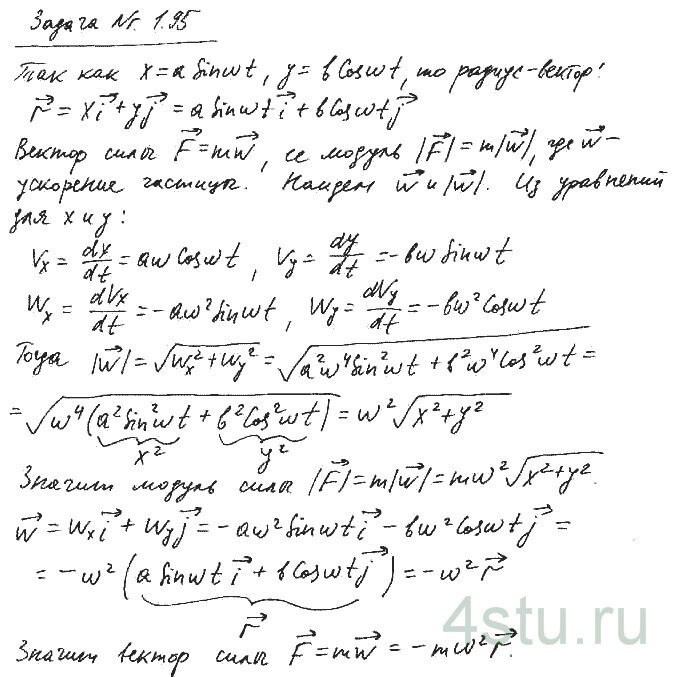 Задача Nr. 1.95
Так как x = a Sinωt, y = b Cosωt, то радиус-вектор:
r⃗ = xi⃗ + yj⃗ = a Sinωt i⃗ + b Cosωt j⃗
Вектор силы F⃗ = mw⃗, её модуль |F⃗| = m|w⃗|, где w⃗ -
ускорение частицы. Найдем w⃗ и |w⃗|. Из уравнений
для x и y:
Vx = dx/dt = aω Cosωt, Vy = dy/dt = -bω Sinωt
Wx = dVx/dt = -aω² Sinωt, Wy = dVy/dt = -bω² Cosωt
Тогда |w⃗| = √(Wx² + Wy²) = √(a²ω⁴ Sin²ωt + b²ω⁴ Cos²ωt) =
= √(ω⁴(a² Sin²ωt + b² Cos²ωt)) = ω² √(x² + y²)
x² y²
Значит модуль силы |F⃗| = m|w⃗| = mω² √(x² + y²).
w⃗ = Wx i⃗ + Wy j⃗ = -aω² Sinωt i⃗ - bω² Cosωt j⃗ =
= -ω² (a Sinωt i⃗ + b Cosωt j⃗) = -ω² r⃗
r⃗
4stu.ru
Значит вектор силы F⃗ = mw⃗ = -mω² r⃗.